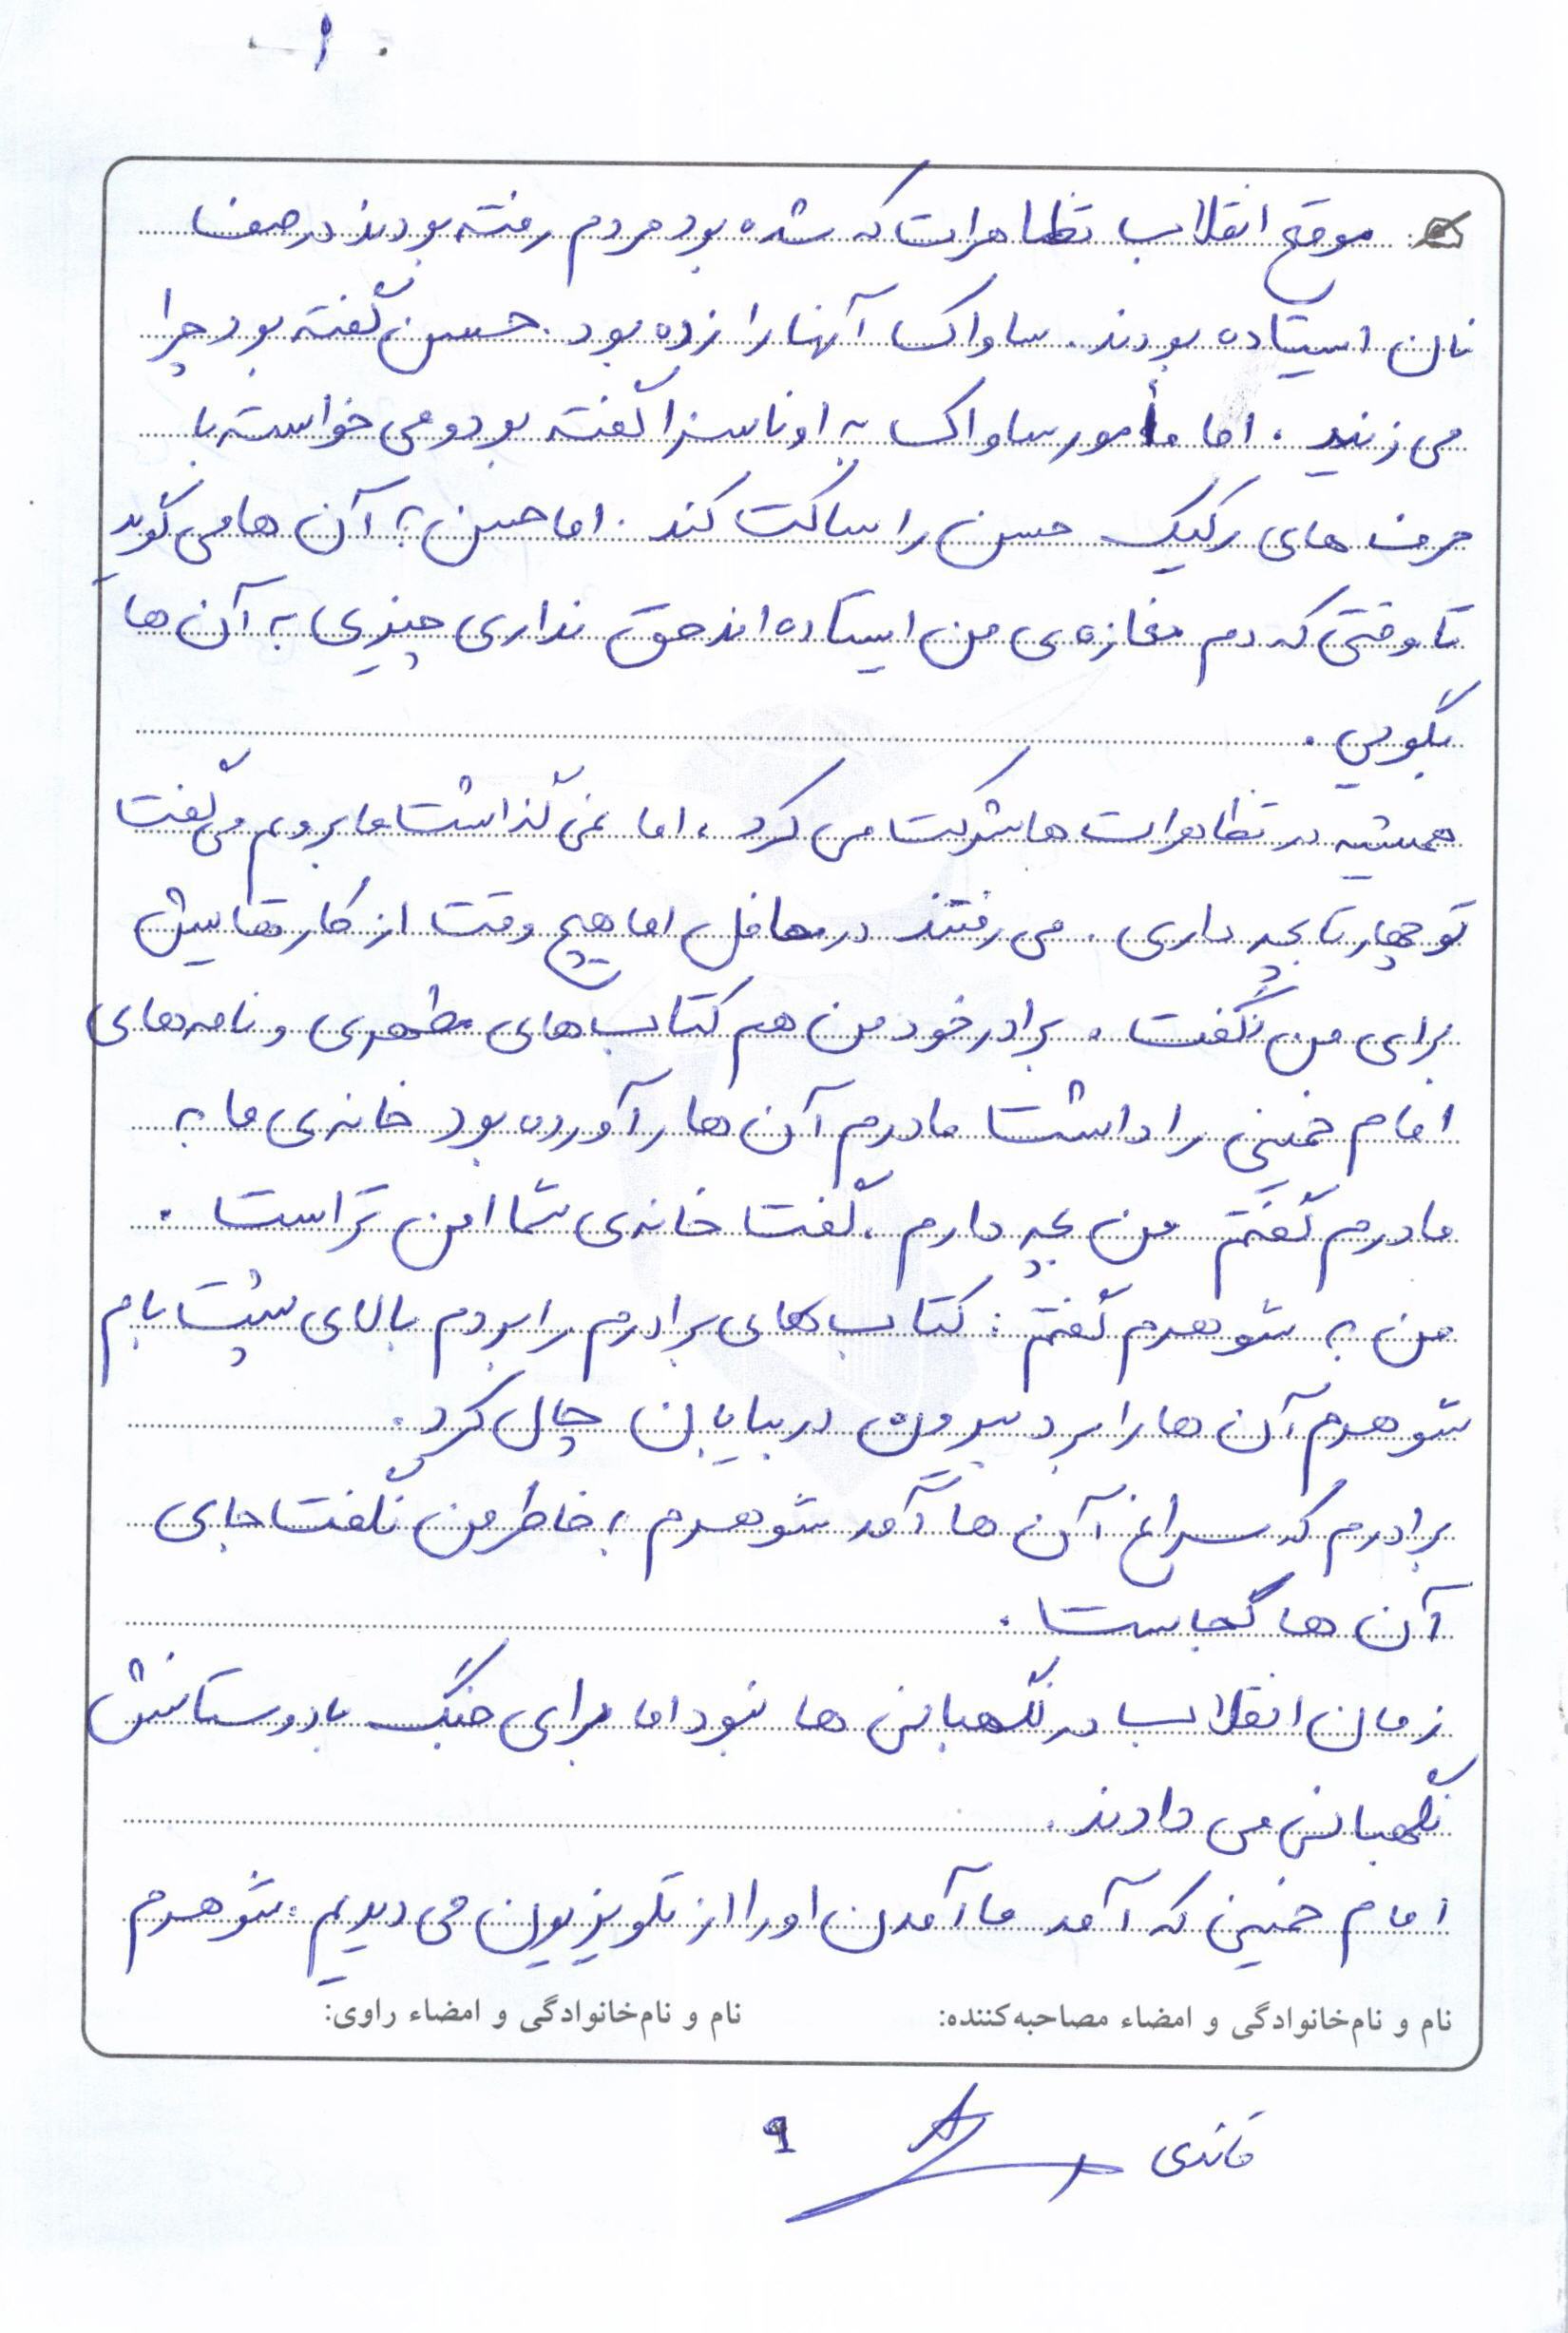 ۱
موقع انقلاب تظاهرات که شده بود مردم رفته بودند در صف
نان ایستاده بودند. ساواک آنها را زده بود. حسن گفته بود چرا
می زنید. اما مأمور ساواک به او ناسزا گفته بود و می خواسته با
حرف های رکیک حسن را ساکت کند. اما حسن به آن ها می گوید
تا وقتی که دم مغازه ی من ایستاده اند حق نداری چیزی به آن ها
بگویی.
همیشه در تظاهرات ها شرکت می کرد، اما نمی گذاشت ما برویم می گفت
تو چهار تا بچه داری. می رفتند در محافل اما هیچ وقت از کارهایش
برای من نگفت. برادر خود من هم کتاب های مطهری و نامه های
امام خمینی را داشت مادرم آن ها را آورده بود خانه ی ما به
مادرم گفتم من بچه دارم، گفت خانه ی شما امن تر است.
من به شوهرم گفتم: کتاب های برادرم را بردم بالای پشت بام
شوهرم آن ها را برد بیرون در بیابان چال کرد.
برادرم که سراغ آن ها آمد شوهرم به خاطر من نگفت جای
آن ها کجاست.
زمان انقلاب در نگهبانی ها نبود اما برای جنگ با دوستانش
نگهبانی می دادند.
امام خمینی که آمد ما آمدن او را از تلویزیون می دیدیم. شوهرم
نام و نام‌خانوادگی و امضاء مصاحبه‌کننده: نام و نام‌خانوادگی و امضاء راوی:
۹